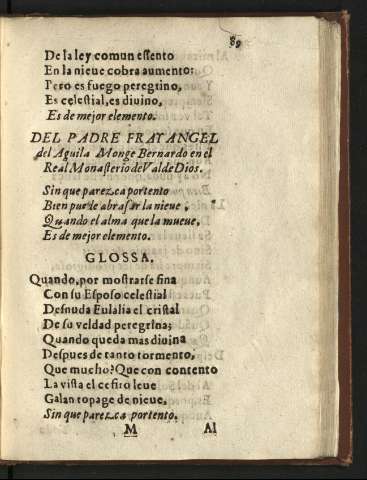 89
De la ley comun essento
En la nieue cobra aumento:
Pero es fuego peregrino,
Es celestial, es diuino,
Es de mejor elemento.
DEL PADRE FRAY ANGEL
del Aguila Monge Bernardo en el
Real Monasterio de Val de Dios.
Sin que parezca portento
Bien puede abrasar la nieue,
Quando el alma que la mueue,
Es de mejor elemento.
GLOSSA.
Quando, por mostrarse fina
Con su Esposo celestial
Desnuda Eulalia el cristal
De su veldad peregrina;
Quando queda mas diuina
Despues de tanto tormento,
Que mucho? Que con contento
La vista el cefiro leue
Galan topage de nieue,
Sin que parezca portento.
M
Al